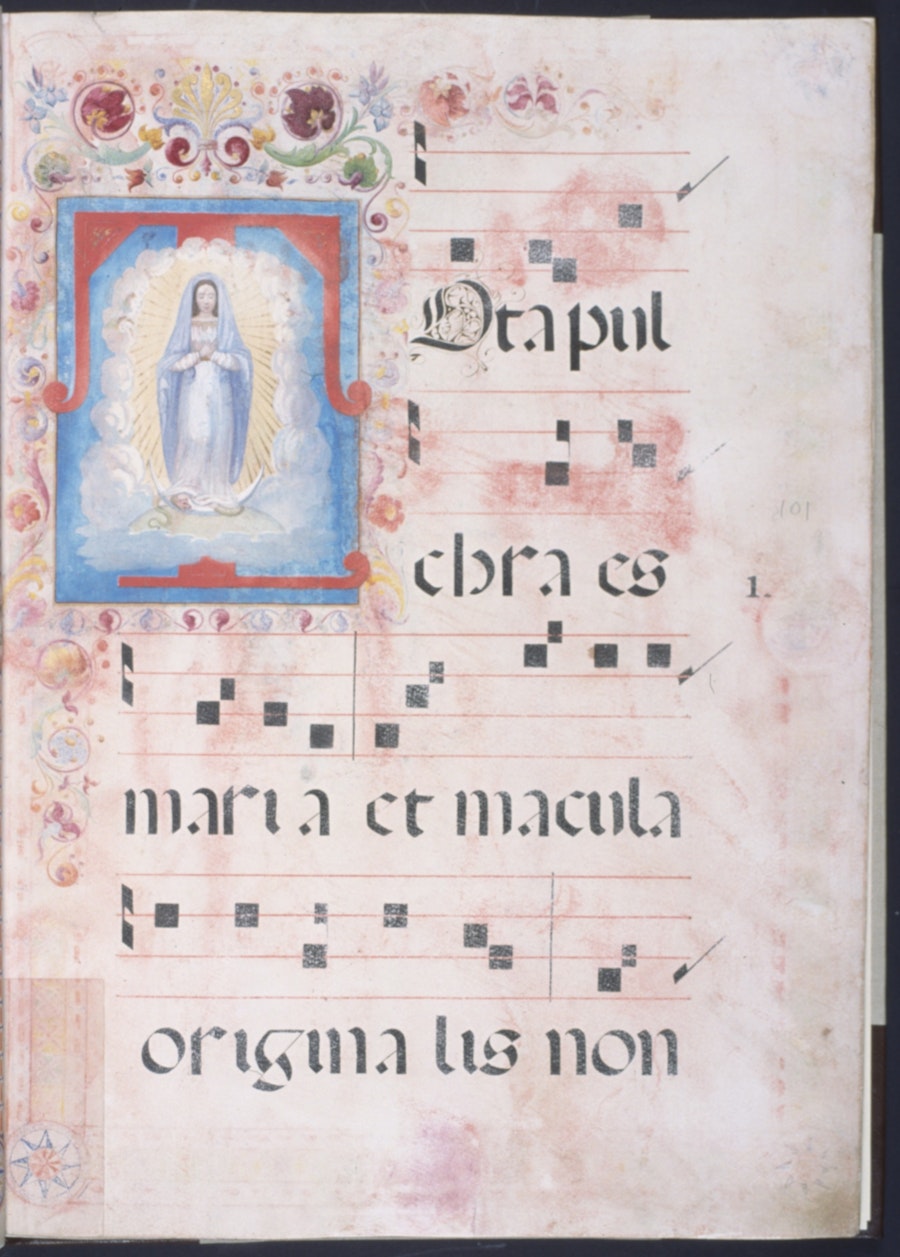 TOta pul
chra es
101
1.
maria et macula
origina lis non